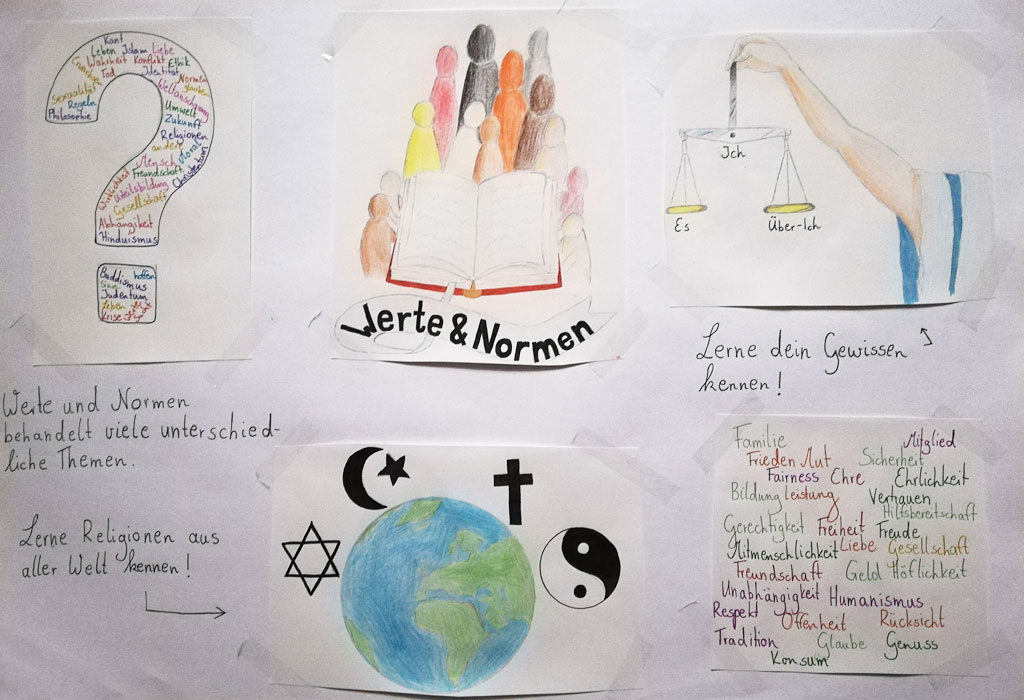 Kant
Leben Islam Liebe
Wahrheit Konflikt Ethik
Tod Identität Normen
Erwachsen glauben
Sexualität Weltanschauung
Regeln Umwelt
Philosophie Zukunft
Religionen
andere
Moral
Mensch
Freundschaft Christentum
Wirklichkeit
Urteilsbildung
Gesellschaft
Abhängigkeit
Hinduismus
Buddismus hoffen
Sinn
Judentum
Leben
Krise
Werte & Normen
Ich
Es Über-Ich
Lerne dein Gewissen
kennen!
Werte und Normen
behandelt viele unterschied-
liche Themen.
Lerne Religionen aus
aller Welt kennen!
Familie Mitglied
Frieden Mut Sicherheit
Fairness Ehre Ehrlichkeit
Bildung Leistung Vertrauen
Hilfsbereitschaft
Gerechtigkeit Freiheit Freude
Mitmenschlichkeit Liebe Gesellschaft
Freundschaft Geld Höflichkeit
Unabhängigkeit Humanismus
Respekt Offenheit Rücksicht
Tradition Glaube Genuss
Konsum